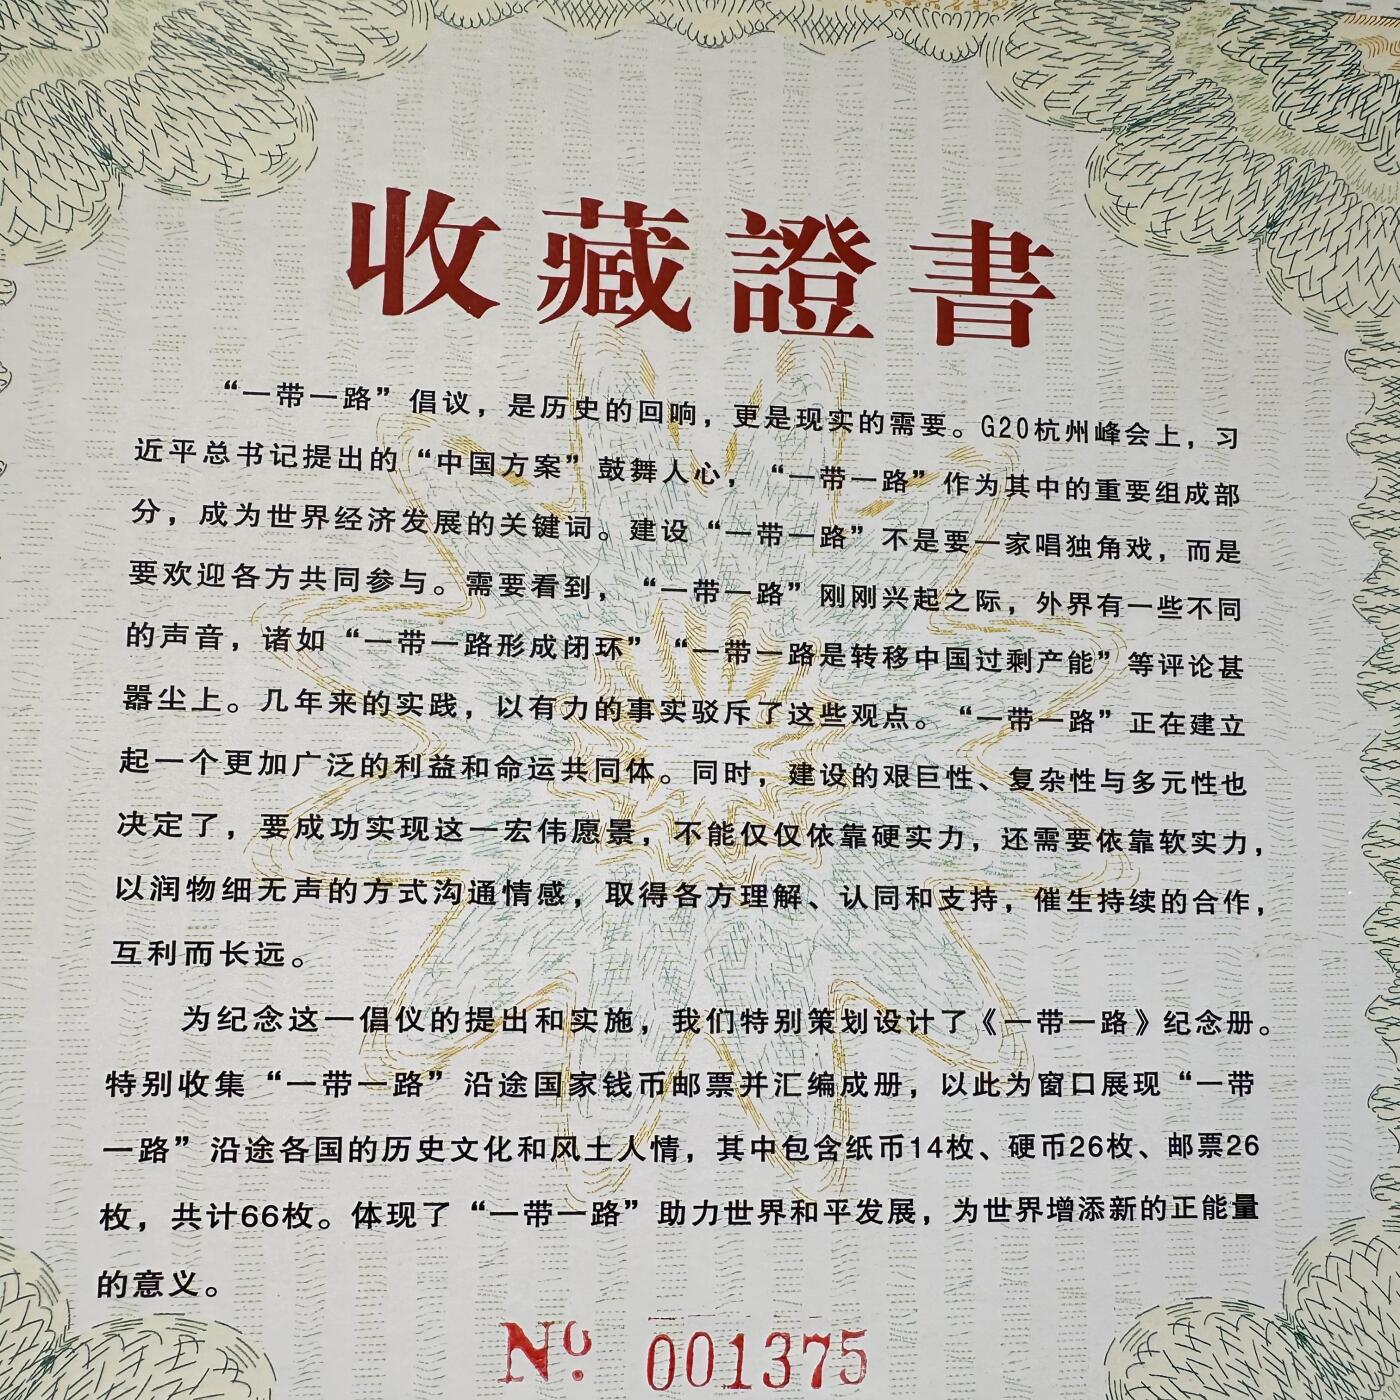 收藏證書
“一带一路”倡议，是历史的回响，更是现实的需要。G20杭州峰会上，习
近平总书记提出的“中国方案”鼓舞人心，“一带一路”作为其中的重要组成部
分，成为世界经济发展的关键词。建设“一带一路”不是要一家唱独角戏，而是
要欢迎各方共同参与。需要看到，“一带一路”刚刚兴起之际，外界有一些不同
的声音，诸如“一带一路形成闭环”“一带一路是转移中国过剩产能”等评论甚
嚣尘上。几年来的实践，以有力的事实驳斥了这些观点。“一带一路”正在建立
起一个更加广泛的利益和命运共同体。同时，建设的艰巨性、复杂性与多元性也
决定了，要成功实现这一宏伟愿景，不能仅仅依靠硬实力，还需要依靠软实力，
以润物细无声的方式沟通情感，取得各方理解、认同和支持，催生持续的合作，
互利而长远。
为纪念这一倡仪的提出和实施，我们特别策划设计了《一带一路》纪念册。
特别收集“一带一路”沿途国家钱币邮票并汇编成册，以此为窗口展现“一带
一路”沿途各国的历史文化和风土人情，其中包含纸币14枚、硬币26枚、邮票26
枚，共计66枚。体现了“一带一路”助力世界和平发展，为世界增添新的正能量
的意义。
№ 001375